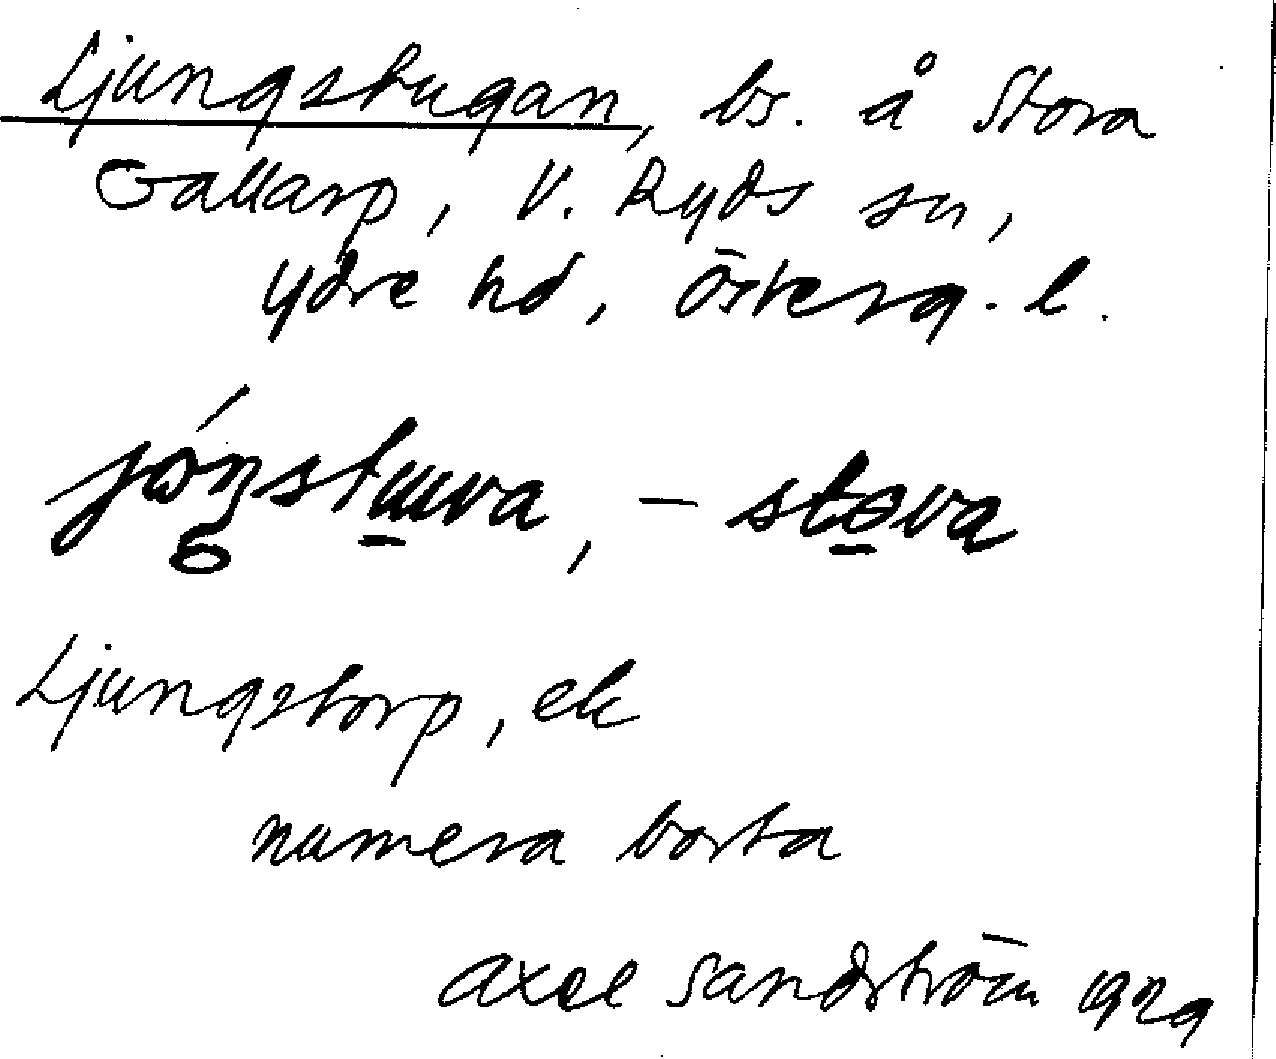 Ljungstugan, bs. å Stora
Gallarp, V. Ryds sn,
Ydre hd, Österg. l.
jóŋstuva, – stova
Ljungstorp, ek
numera borta
Axel Sandström 1929